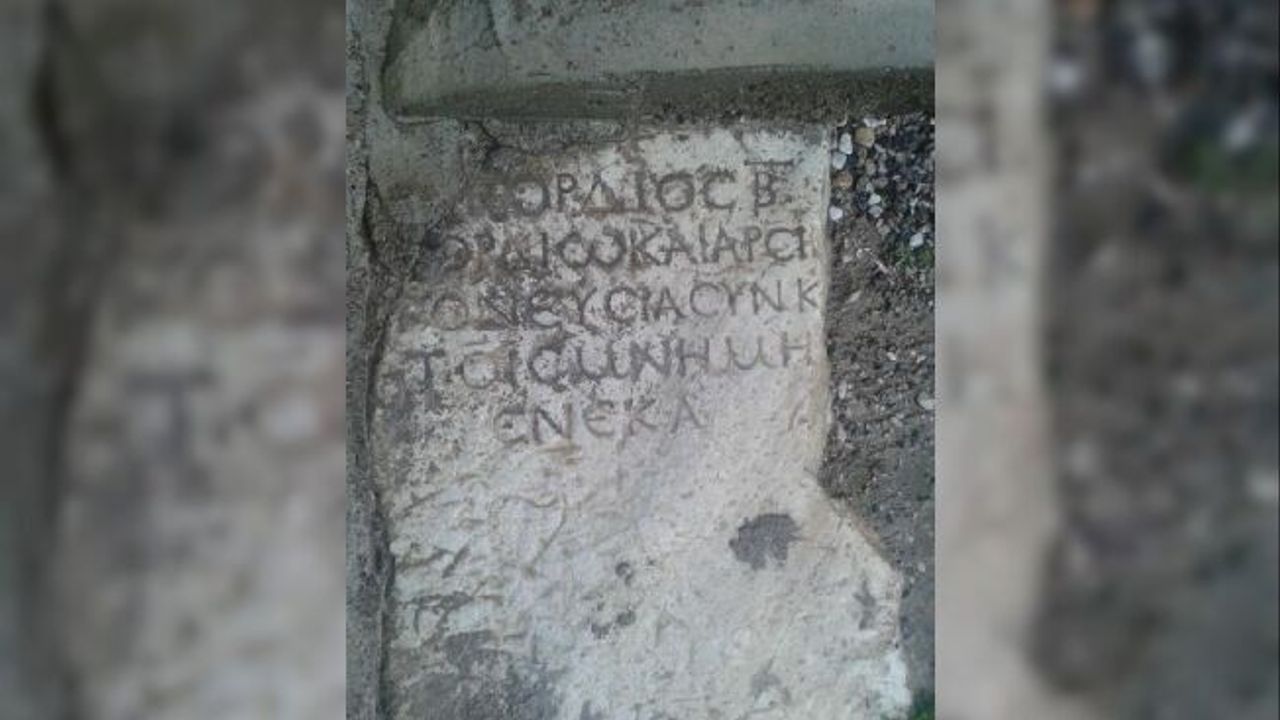 ΟΡΔΙΟϹ Β̅
ΟΡΔΙΩ ΚΑΙ ΑΡϹΙ
ΟΝΕΥϹΙ ΑϹΥΝΚ
ΤΟΙϹ ΜΝΗΜΗ
ΕΝΕΚΑ